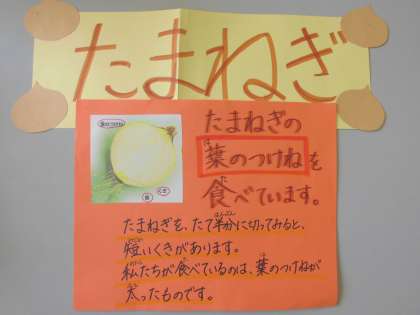 たまねぎ
たまねぎの
葉のつけねを
食べています。
根
くき
たまねぎを、たて半分に切ってみると、
短いくきがあります。
私たちが食べているのは、葉のつけねが
太ったものです。